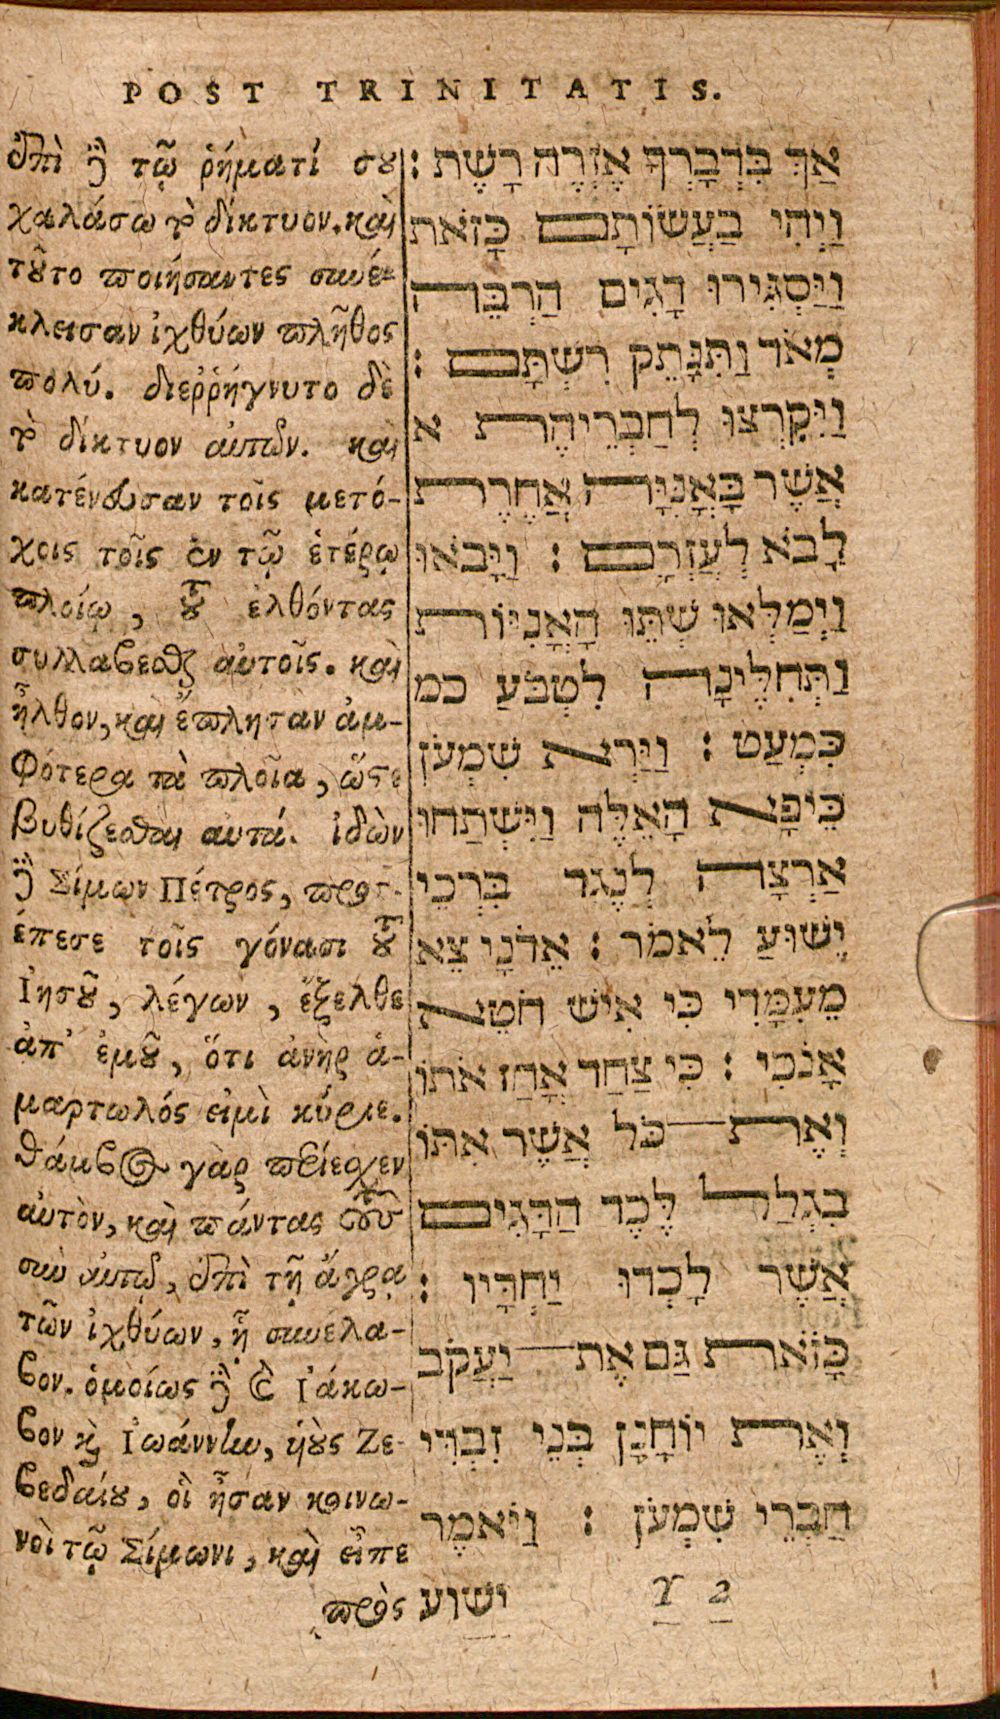 POST TRINITATIS.
ἐπὶ δὲ τῷ ῥήματί σου
χαλάσω τὸ δίκτυον. καὶ
τοῦτο ποιήσαντες συνέ-
κλεισαν ἰχθύων πλῆθος
πολύ. διεῤῥήγνυτο δὲ
τὸ δίκτυον αὐτῶν. καὶ
κατένευσαν τοῖς μετό-
χοις τοῖς ἐν τῷ ἑτέρῳ
πλοίῳ, τοῦ ἐλθόντας
συλλαβέσθαι αὐτοῖς. καὶ
ἦλθον, καὶ ἔπλησαν ἀμ-
φότερα τὰ πλοῖα, ὥστε
βυθίζεσθαι αὐτά. ἰδὼν
δὲ Σίμων Πέτρος, προσ-
έπεσε τοῖς γόνασι τοῦ
Ἰησοῦ, λέγων, ἔξελθε
ἀπ' ἐμοῦ, ὅτι ἀνὴρ ἁ-
μαρτωλός εἰμὶ κύριε.
θάμβος γὰρ περιέσχεν
αὐτὸν, καὶ πάντας τοὺς
σὺν αὐτῷ, ἐπὶ τῇ ἄγρᾳ
τῶν ἰχθύων, ᾗ συνέλα-
βον. ὁμοίως δὲ καὶ Ἰάκω-
βον καὶ Ἰωάννην, υἱοὺς Ζε-
βεδαίου, οἳ ἦσαν κοινω-
νοὶ τῷ Σίμωνι, καὶ εἶπε
πρὸς
אַךְ בִּדְבָרְךָ אֶזְרֶה רָשֶׁת :
וַיְהִי בַּעֲשׂוֹתָם כָּזֹאת
וַיַּסְגִּירוּ דָגִים הַרְבֵּה
מְאֹד וַתִּנָּתֵק רִשְׁתָּם :
וַיִּקְרְצוּ לְחַבְרֵיהֶת א
אֲשֶׁר בָּאֳנִיָּה אֲחֶרֶת
לָבֹא לְעֻזְרָם : וַיָּבֹאוּ
וַיְמַלְאוּ שְׁתֵּי הָאֳנִיּוֹת
וַתְּחִלֶּינָה לִטְבֹּעַ כמ
כִּמְעַט : וַיַּרְא שִׁמְעֹן
כֵּיפָא הָאֵלֶּה וַיִּשְׁתַּחוּ
אַרְצָה לְנֶגֶד בִּרְכֵּי
יֵשׁוּעַ לֵאמֹר : אֲדֹנָי צֵא
מֵעִמָּדִי כִּי אִישׁ חֹטֵא
אָנֹכִי : כִּי צַחַד אָחַז אֹתוֹ
וְאֶת כֹּל אֲשֶׁר אִתּוֹ
בִּגְלַל לֶכֶד הַדָּגִים
אֲשֶׁר לָכְדוּ יַחְדָּיו :
כָּזֹאת גַּם אֶת יַעֲקֹב
וְאֶת יוֹחָנָן בְּנֵי זַבְדִּי
חַבְרֵי שִׁמְעֹן : וַיֹּאמֶר
ישוע
Y 2